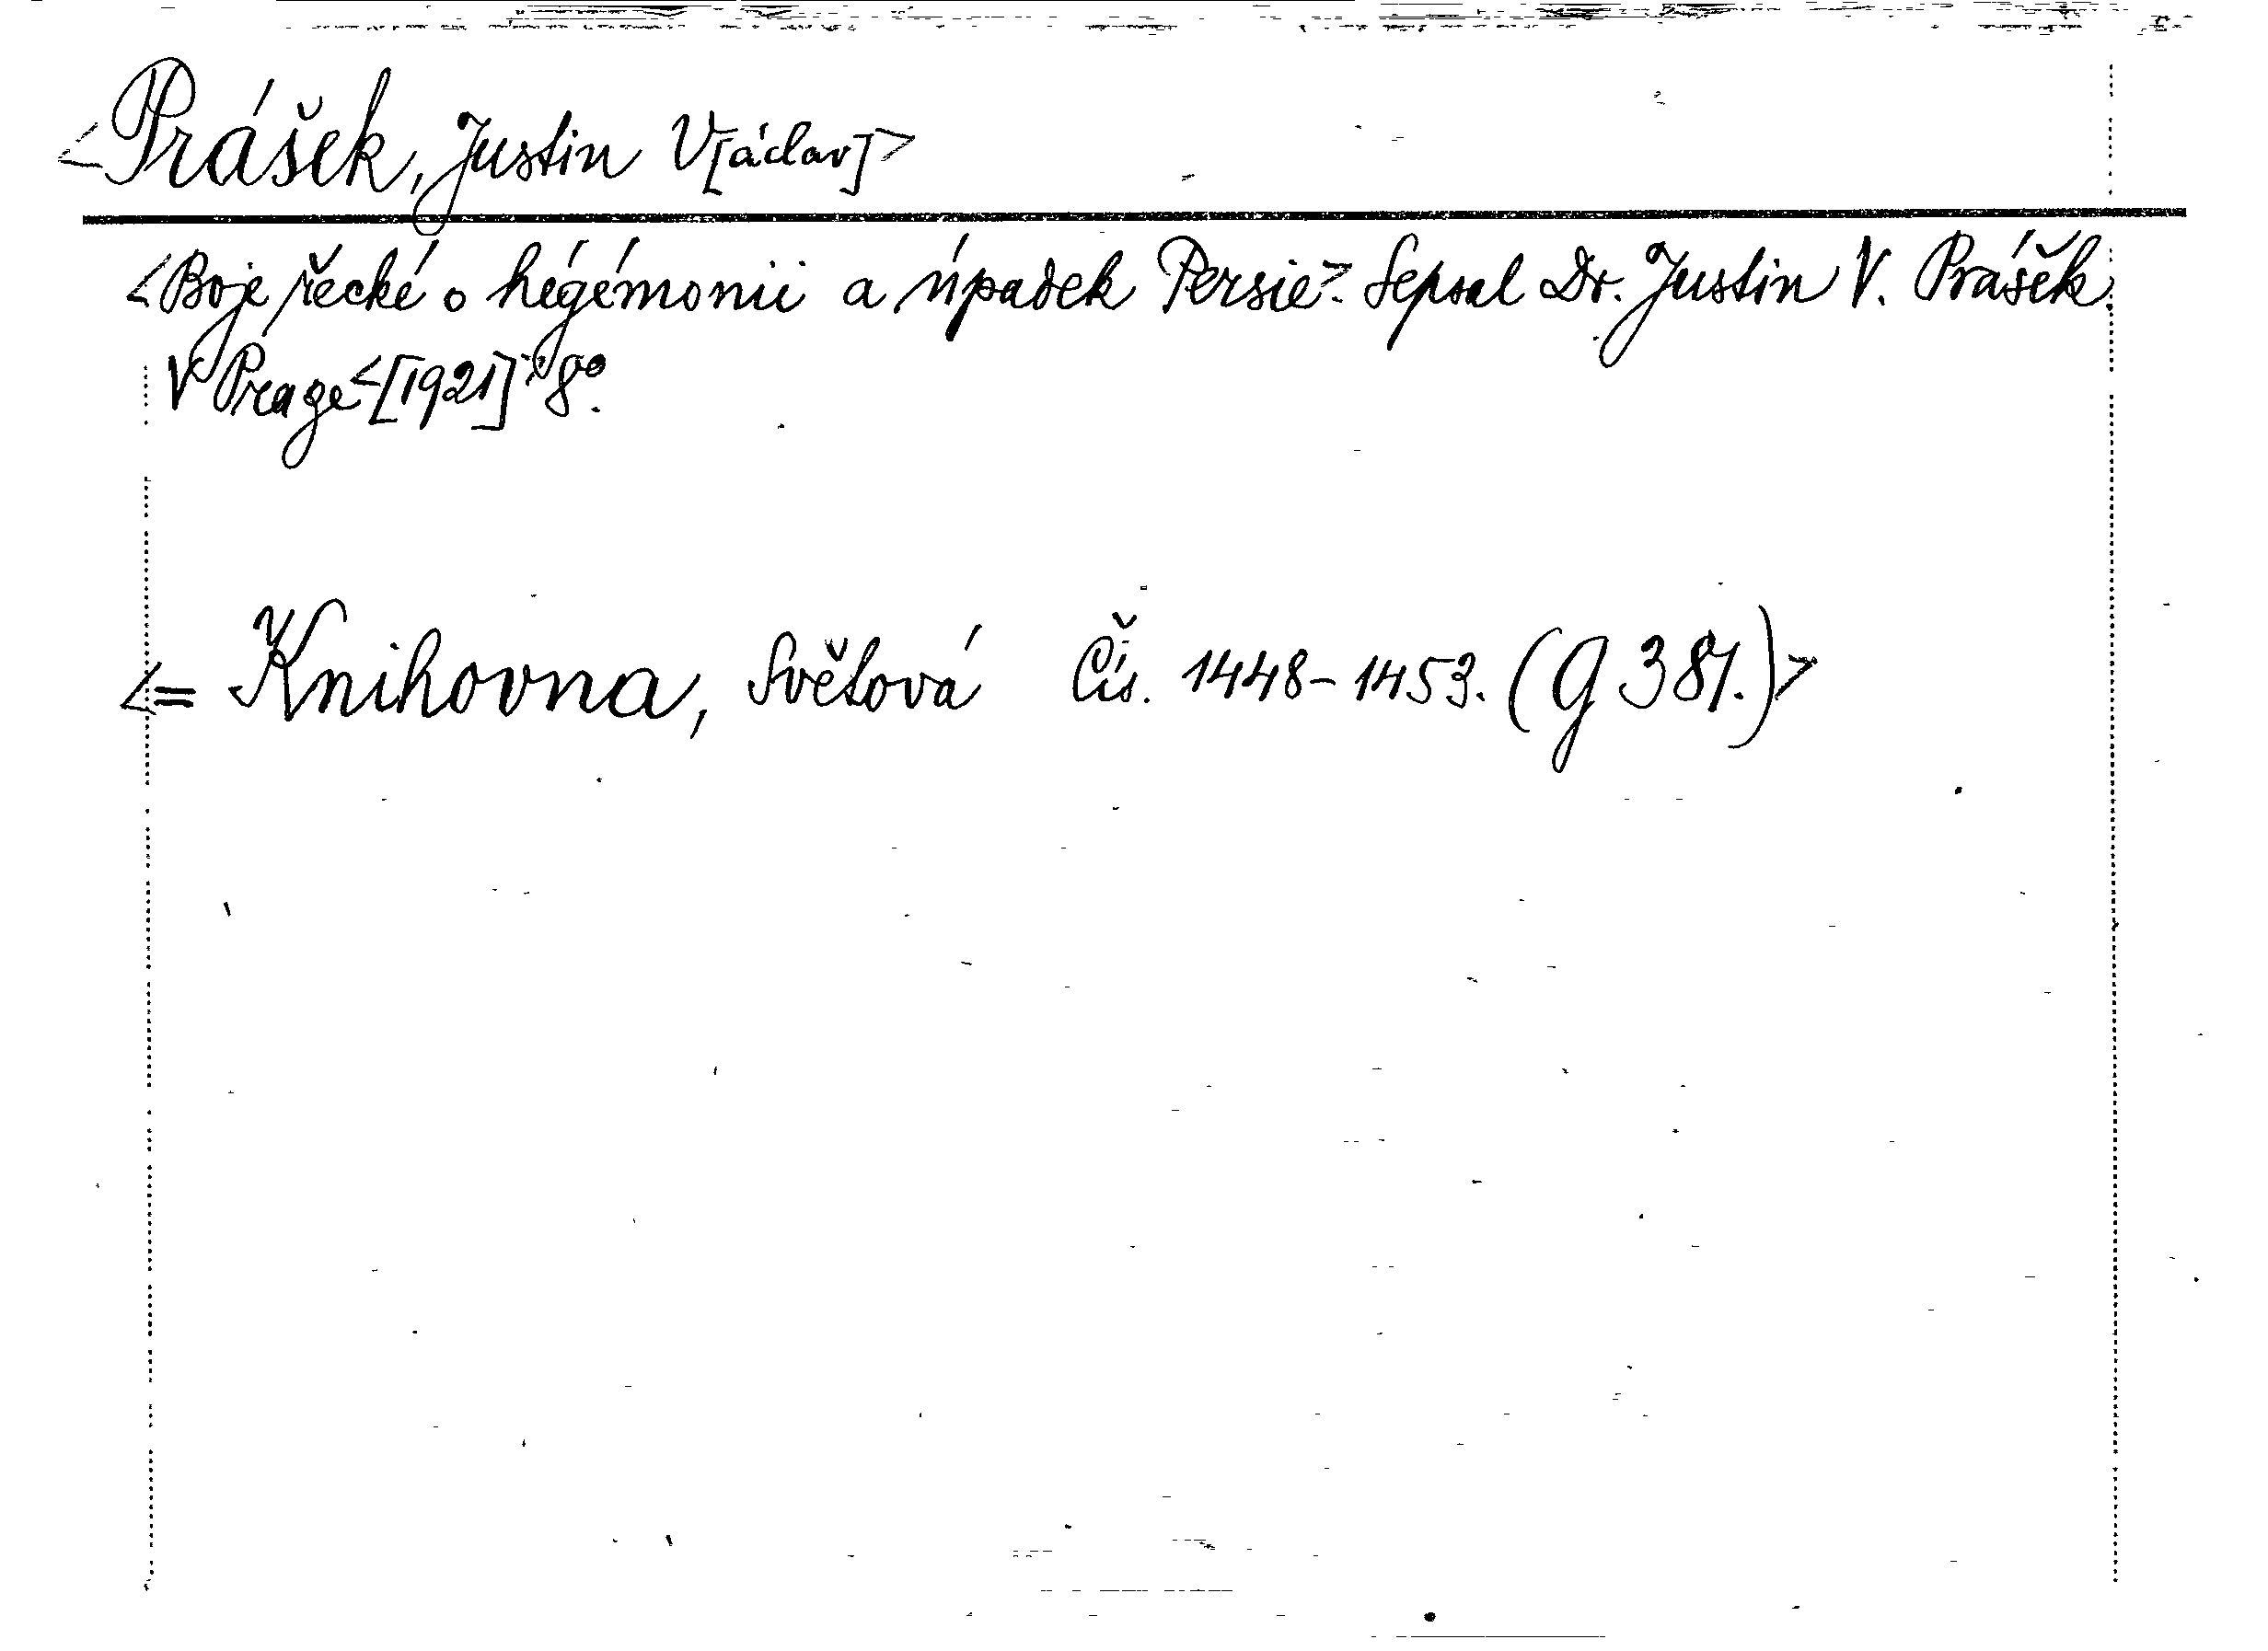 <Prášek, Justin V[áclav]>
<Boje řecké o hégémonii a úpadek Persie>. Sepsal Dr. Justin V. Prášek.
V Praze <[1921]> 8°.
<= Knihovna, Světová Čís. 1448-1453. (G 381.)>